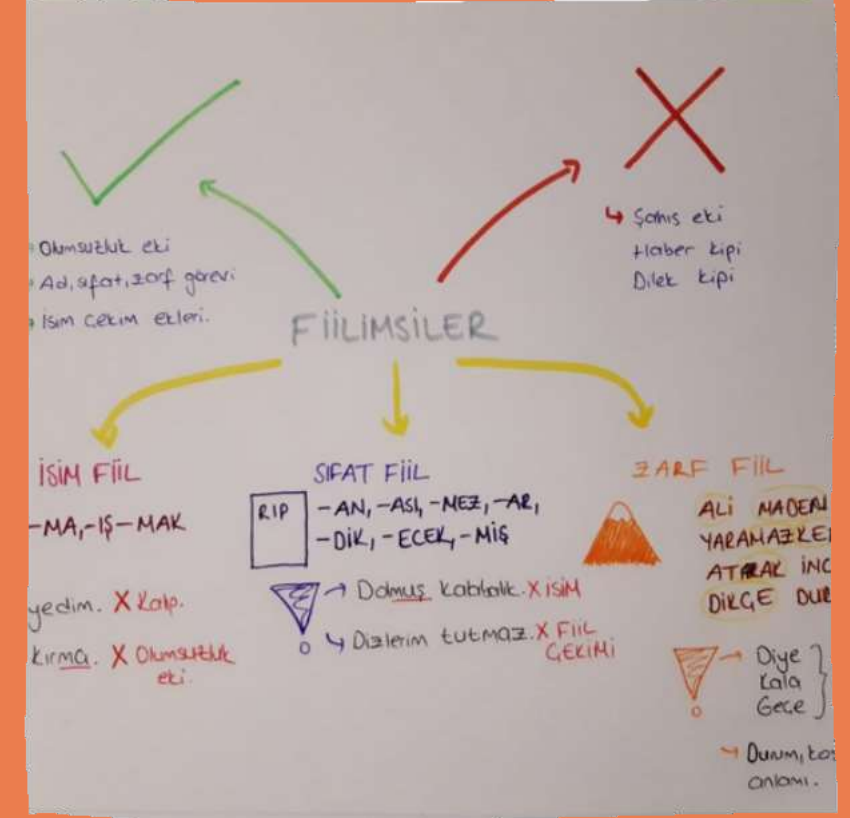 Olumsuzluk eki
Ad, sıfat, zarf görevi
İsim çekim ekleri.
↳ Şahıs eki
Haber kipi
Dilek kipi
FİİLİMSİLER
İSİM FİİL
-MA, -IŞ -MAK
yedim. X Kalıp.
kırma. X Olumsuzluk
eki.
SIFAT FİİL
RIP
-AN, -ASI, -MEZ, -AR,
-DİK, -ECEK, -MİŞ
→ Dolmuş kalabalık. X İSİM
↳ Dizlerim tutmaz. X FİİL
ÇEKİMİ
ZARF FİİL
ALİ MADEM
YARAMAZKE
ATARAK İNC
DİKÇE DUR
→ Diye
Kala
Geçe
→ Durum,
anlamı.